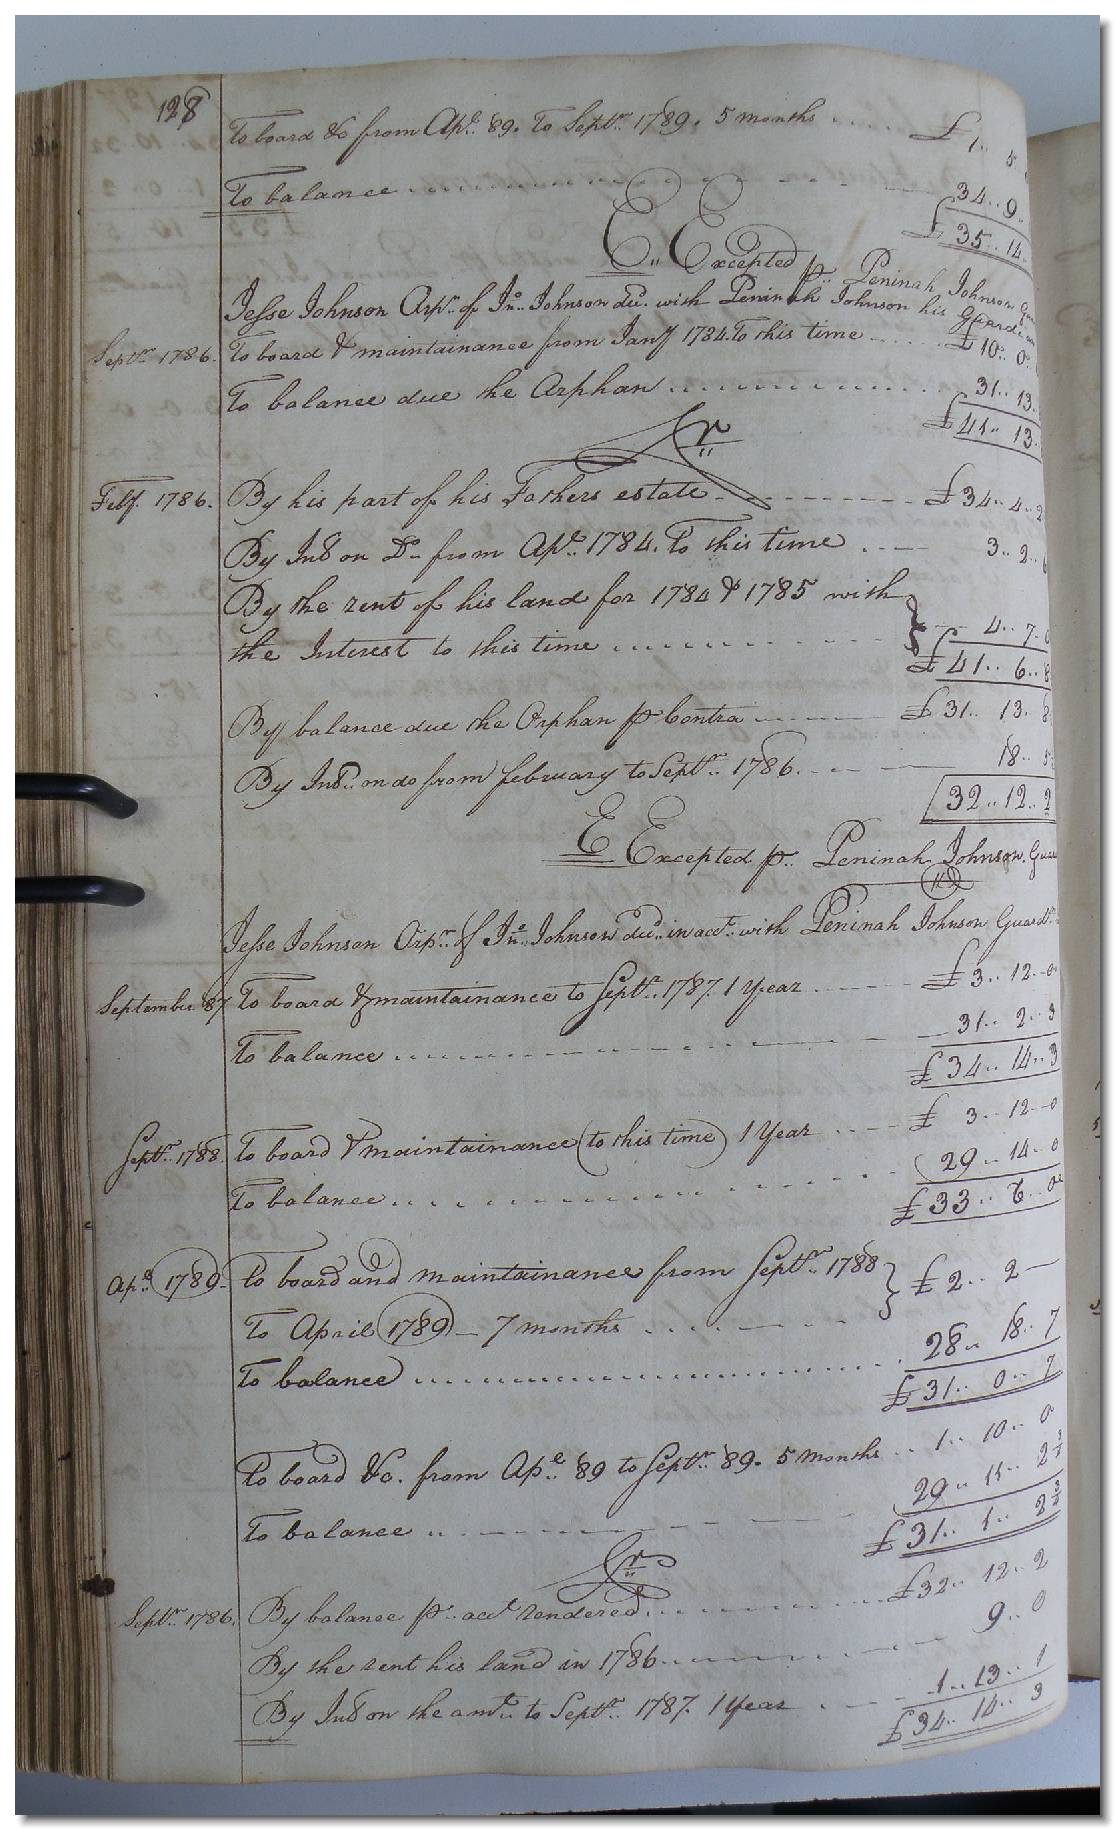 128
To board &c from Apl. 89. To Septr. 1789. 5 months £ 1.. 5
To balance 34.. 9..
£ 35.. 14.
E.. Excepted pr. Peninah Johnson
Jesse Johnson Orpn. of Jno. Johnson decd. with Peninah Johnson his Guardian
Septr. 1786. To board & maintainance from Jany 1784. To this time £ 10.. 0..
To balance due the Orphan 31.. 13..
£ 41.. 13.
Cr
Feby. 1786. By his part of his Fathers estate £ 34.. 4.. 2
By Int on Do from Apl. 1784. To this time 3.. 2..
By the rent of his land for 1784 & 1785 with
the Interest to this time 4.. 7.. 0
£ 41.. 6.. 8
By balance due the Orphan pr Contra £ 31.. 13.. 8
By Int.. on do from february to Septr. 1786. 18.. 5
32.. 12.. 2
E Excepted pr.. Peninah Johnson.
Jesse Johnson Orpn. of Jno. Johnson decd. in acct. with Peninah Johnson Guardn.
September 87 To board & maintainance to Septr.. 1787. 1 Year £ 3.. 12..0
To balance 31.. 2.. 3
£ 34.. 14.. 3
Septr. 1788. To board & maintainance (to this time) 1 Year £ 3.. 12..0
To balance 29.. 14.. 0
£ 33.. 6.. 0
Apl. 1789. To board and maintainance from Septr. 1788 £ 2.. 2 —
To April 1789 — 7 months
To balance 28.. 18.. 7
£ 31.. 0.. 7
To board &c. from Apl. '89 to Septr.. '89. 5 months 1.. 10.. 0
To balance 29.. 11.. 2 3/4
£ 31.. 1.. 2 3/4
Cr
Septr. 1786. By balance pr.. acct rendered £ 32.. 12.. 2
By the rent his land in 1786 9.. 0
By Int on the amt.. to Septr.. 1787. 1 Year 1.. 13.. 1
£ 34.. 14.. 3